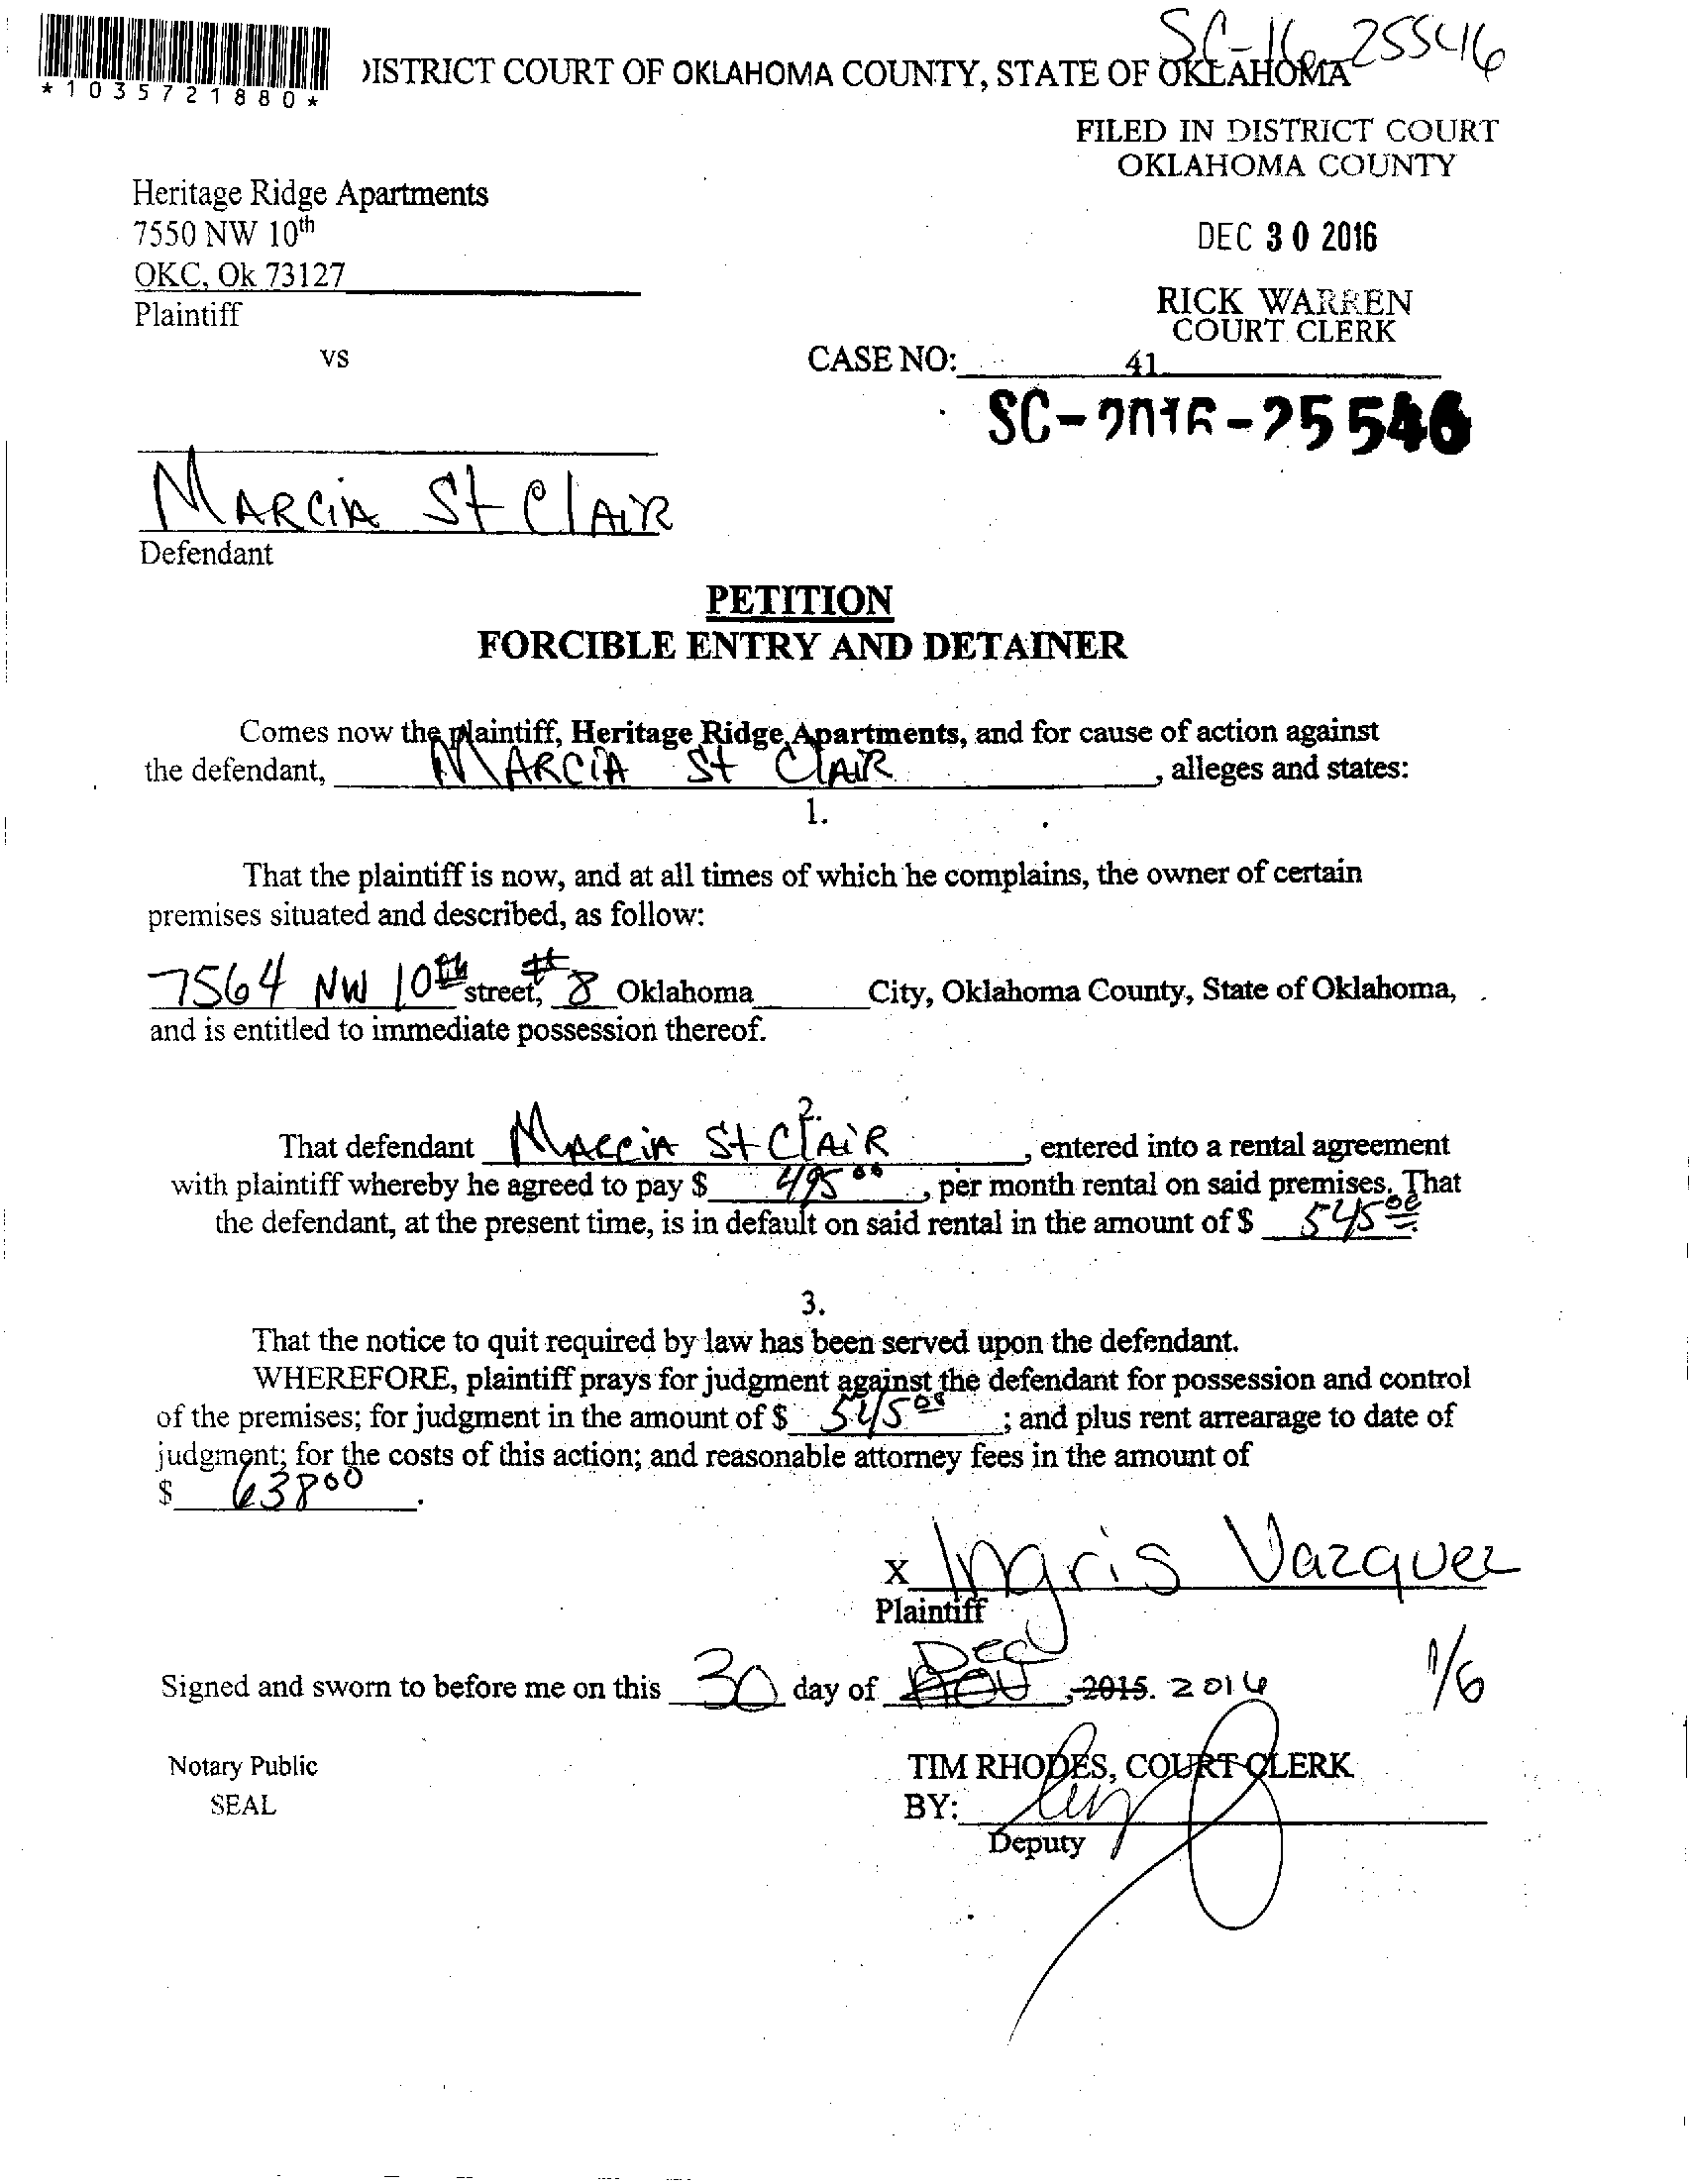 SC-16-25546
*1035721880*
DISTRICT COURT OF OKLAHOMA COUNTY, STATE OF OKLAHOMA
FILED IN DISTRICT COURT
OKLAHOMA COUNTY
Heritage Ridge Apartments
7550 NW 10th
OKC, Ok 73127
Plaintiff
DEC 30 2016
RICK WARREN
COURT CLERK
vs
CASE NO: 41
SC-2016-25546
MARCIA St ClAIR
Defendant
PETITION
FORCIBLE ENTRY AND DETAINER
Comes now the plaintiff, Heritage Ridge Apartments, and for cause of action against
the defendant, MARCIA St ClAIR, alleges and states:
1.
That the plaintiff is now, and at all times of which he complains, the owner of certain
premises situated and described, as follow:
7564 NW 10th street, #8 Oklahoma City, Oklahoma County, State of Oklahoma,
and is entitled to immediate possession thereof.
2.
That defendant MARCIA St ClAIR, entered into a rental agreement
with plaintiff whereby he agreed to pay $ 495 00, per month rental on said premises. That
the defendant, at the present time, is in default on said rental in the amount of $ 545 00.
3.
That the notice to quit required by law has been served upon the defendant.
WHEREFORE, plaintiff prays for judgment against the defendant for possession and control
of the premises; for judgment in the amount of $ 545 00; and plus rent arrearage to date of
judgment; for the costs of this action; and reasonable attorney fees in the amount of
$ 638 00.
x Ingris Vazquez
Plaintiff
Dec
Signed and sworn to before me on this 30 day of Nov, 2015. 2016
1/6
Notary Public
SEAL
TIM RHODES, COURT CLERK
BY:
Deputy